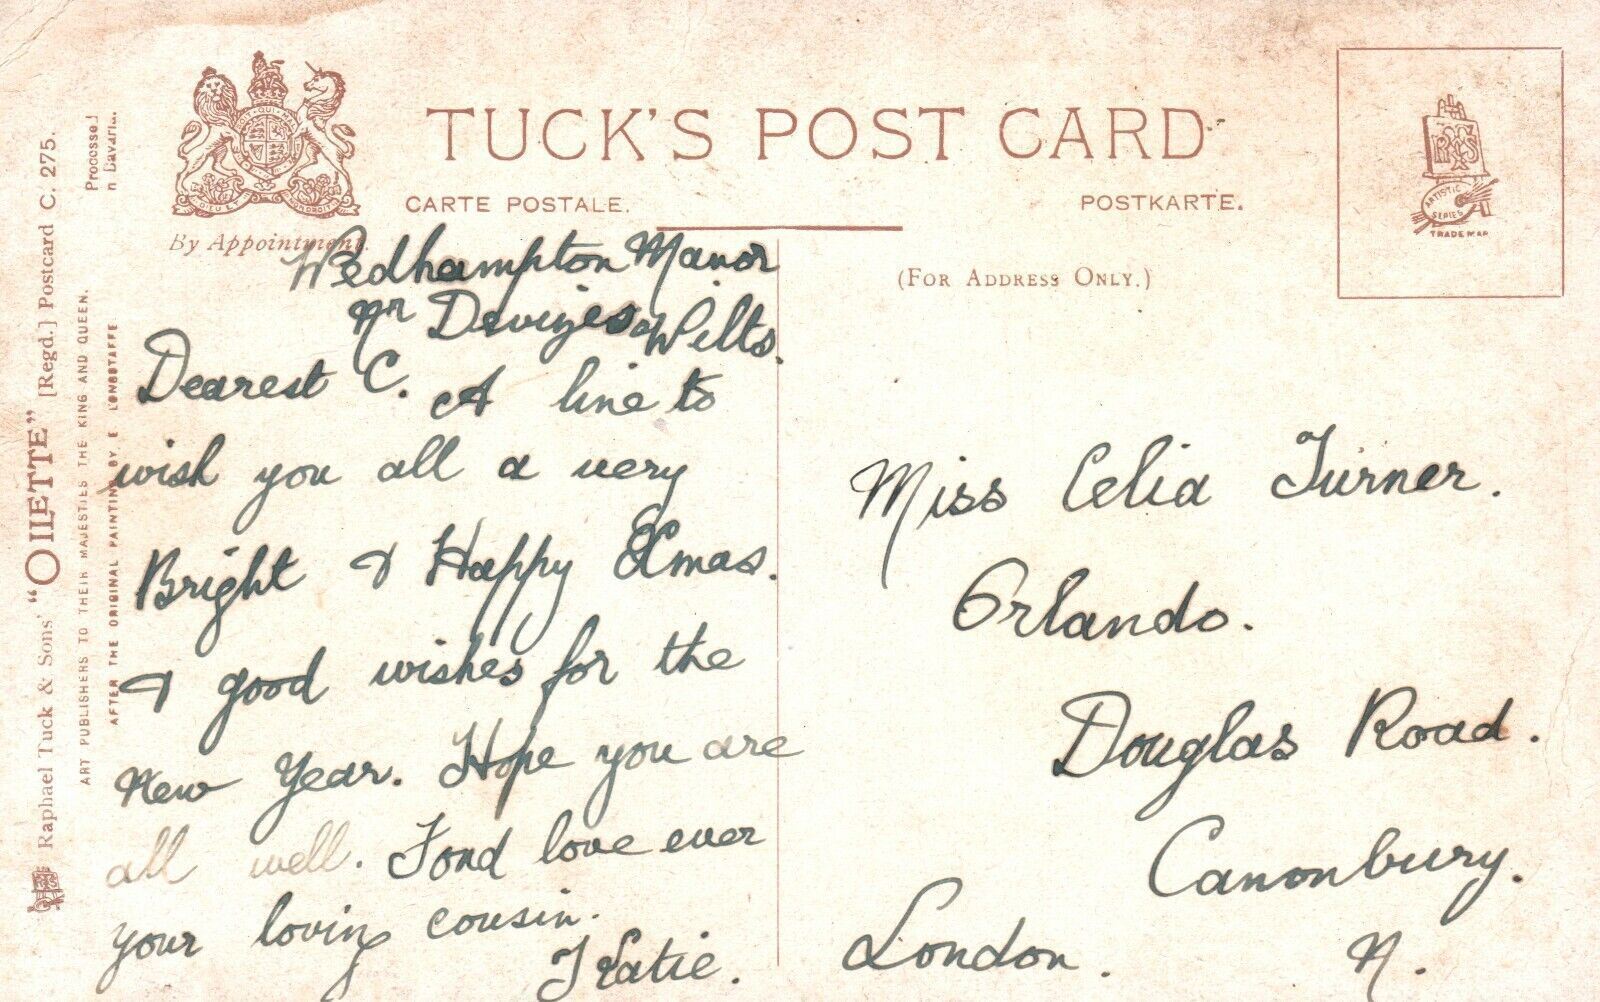 TUCK'S POST CARD
CARTE POSTALE.
POSTKARTE.
By Appointment.
(FOR ADDRESS ONLY.)
ARTISTIC
SERIES
TRADE MAR
Raphael Tuck & Sons' "OILETTE" [Regd.] Postcard C. 275.
ART PUBLISHERS TO THEIR MAJESTIES THE KING AND QUEEN.
AFTER THE ORIGINAL PAINTING BY E LONGSTAFFE
Processed
n Bavaria.
Wedhampton Manor
Nr Devizes Wilts.
Dearest C. A line to
wish you all a very
Bright & Happy Xmas.
& good wishes for the
New Year. Hope you are
all well. Fond love ever
your loving cousin.
Katie.
Miss Celia Turner.
Orlando.
Douglas Road.
Canonbury.
London. N.